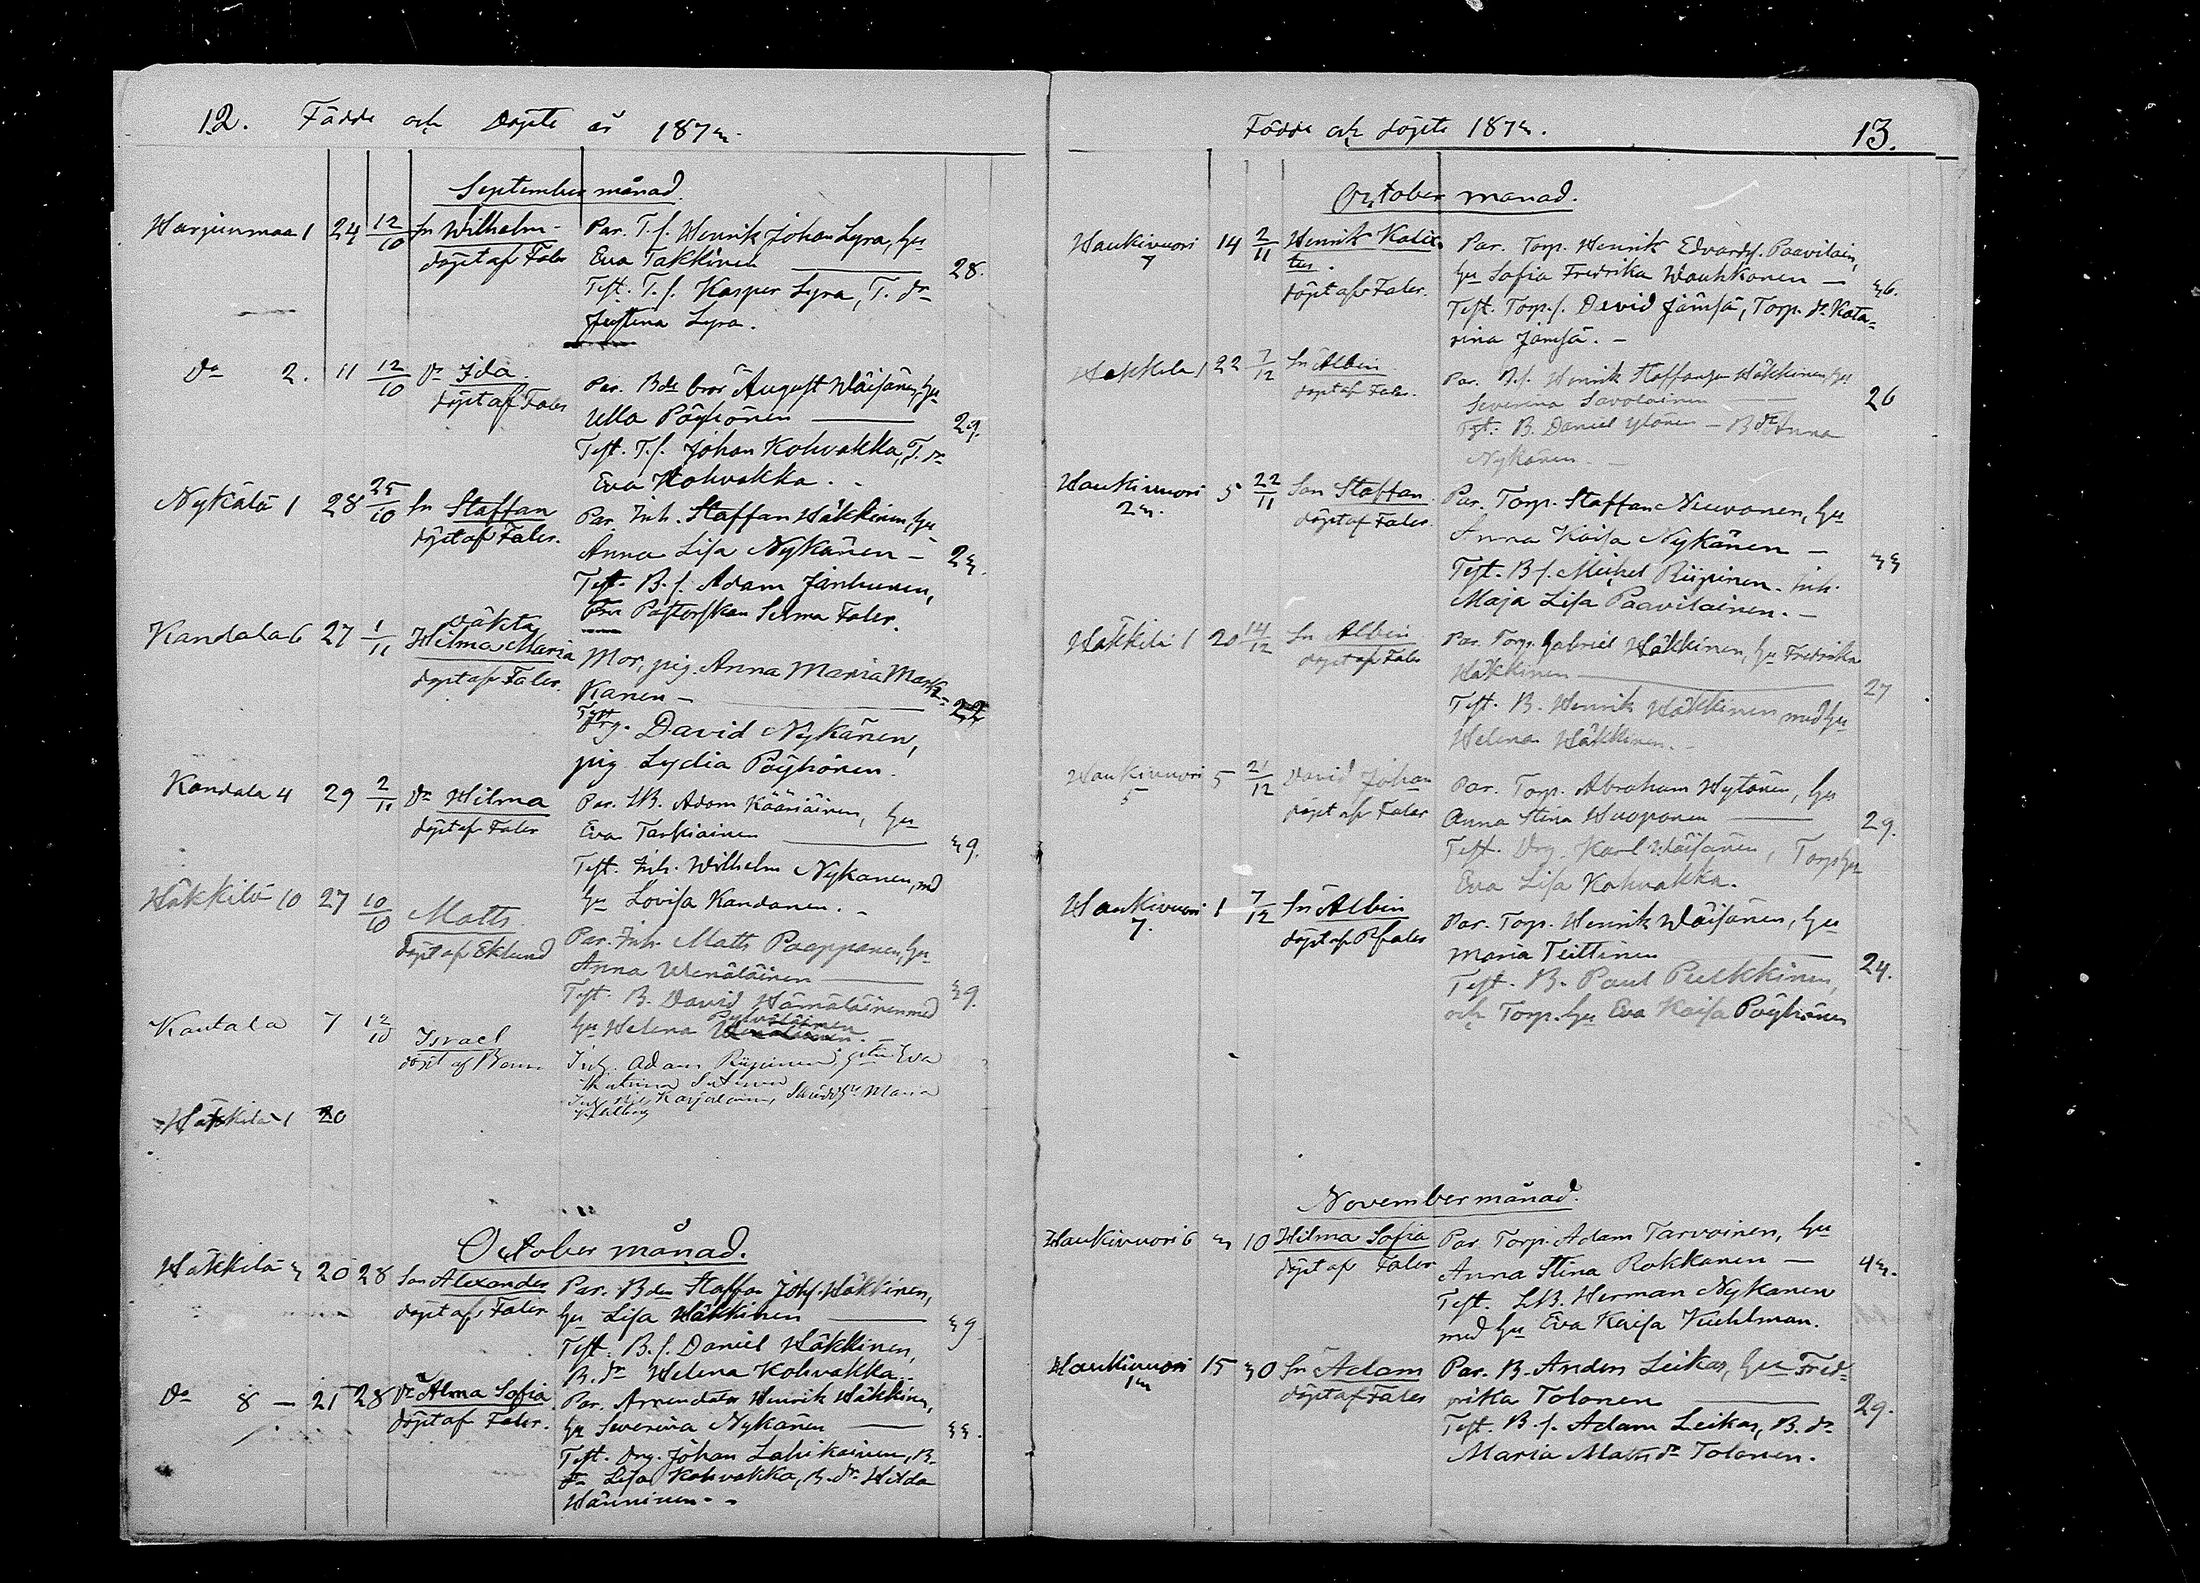 12. Födde och Döpte år 187
September månad.
Harjunmaa 1 24 12/10 Sn Wilhelm
döpt af Faler
Par. T.f. Henrik Johan Lyra, hu
Eva Takkinen
28.
Test. T.f. Kasper Lyra, T. dr
Justina Lyra.
Do 2. 11 12/10 Dr Ida.
döpt af Faler
Par. Bde bror August Wäisänen, hu
Ulla Pöyhönen
29.
Test. T.f. Johan Kohvakka, T. dr
Eva Kohvakka.
Nykälä 1 28 25/10 Sn Staffan
döpt af Faler.
Par. Inh. Staffan Häkkinen, hu
Anna Lisa Nykänen
Test. B.f. Adam Janhunen,
Pastorskan Selma Faler.
Kandala 6 27 1/11 oäkta
Hilma Maria
döpt af Faler.
Mor, pig. Anna Maria Mark-
kanen
22
Test. Drg. David Nykänen,
pig Lydia Pöyhönen.
Kandala 4 29 2/11 Dr Hilma
döpt af Faler
Par. LB. Adam Kääriäinen, hu
Eva Tarkiainen
39.
Test. Inh. Wilhelm Nykanen, md
hu Lovisa Kandanen.
Häkkilä 10 27 10/10 Matts
döpt af Eklund
Par. Inh. Matts Paappanen, hu
Anna Wenäläinen
39.
Test. B. David Hämäläinen med
hu Helena Pylvöläinen
Kautala 7 12/10 Israel
döpt af
Inh. Adam Riipinen, Eva
Katrina
Karjalainen, Maria
Häkkilä 1 20
October månad.
Häkkilä 3 20 28 Son Alexander
döpt af Faler
Par. Bden Staffan Johs. Häkkinen,
hu Lisa Häkkinen
39
Test. B.f. Daniel Häkkinen,
B. dr Helena Kohvakka.
Do 8 — 25 28 Dr Alma Sofia
döpt af Faler.
Par. Arrendator Henrik Häkkinen,
hu Severina Nykänen
33.
Test. Drg. Johan Lahikainen, B.
dr Lisa Kohvakka, B. dr Hilda
Hänninen.
Födde och döpte 187 . 13.
October månad.
Haukivuori
7
14 2/11 Henrik Kalix-
tus.
döpt af Faler.
Par. Torp. Henrik Edvards. Paavilain,
hu Sofia Fredrika Wauhkonen
36.
Test. Torp.f. David Jämsä, Torp. dr Kata-
rina Jämsä.
Häkkilä 1 22 7/12 Sn Albin
döpt af Faler.
Par. B.f. Henrik Staffansson Häkkinen, hu
Severina Savolainen
26
Test. B. Daniel Ylönen — B dr Anna
Nykänen.
Haukivuori
5 22/11 Son Staffan
döpt af Faler.
Par. Torp. Staffan Neuvonen, hu
Anna Kaisa Nykänen
33
Test. B.f. Michel Riipinen. inh.
Maja Lisa Paavilainen.
Häkkilä 1 20 14/12 Sn Albin
döpt af Faler
Par. Torp. Gabriel Häkkinen, hu Fredrika
Häkkinen
27
Test. B. Henrik Häkkinen med hu
Helena Häkkinen.
Haukivuori
5
5 21/12 David Johan
döpt af Faler
Par. Torp. Abraham Hytönen, hu
Anna Stina Huoponen
29.
Test. Drg. Karl Wäisänen, Torp hu
Eva Lisa Kohvakka.
Haukivuori
7.
1 7/12 Sn Albin
döpt af Faler
Par. Torp. Henrik Wäisänen, hu
Maria Teittinen
24.
Test. B. Paul Pulkkinen,
och Torp. hu Eva Kaisa Pöyhönen
November månad.
Haukivuori 6 10 Hilma Sofia
döpt af Faler
Par. Torp. Adam Tarvainen, hu
Anna Stina Rokkanen
Test. LB. Herman Nykanen
med hu Eva Kaisa Kuhlman.
Haukivuori
15 30 Sn Adam
döpt af Faler
Par. B. Anders Leikas, hu Fred-
rika Tolonen
29.
Test. B.f. Adam Leikas, B. dr
Maria Mats dr Tolonen.